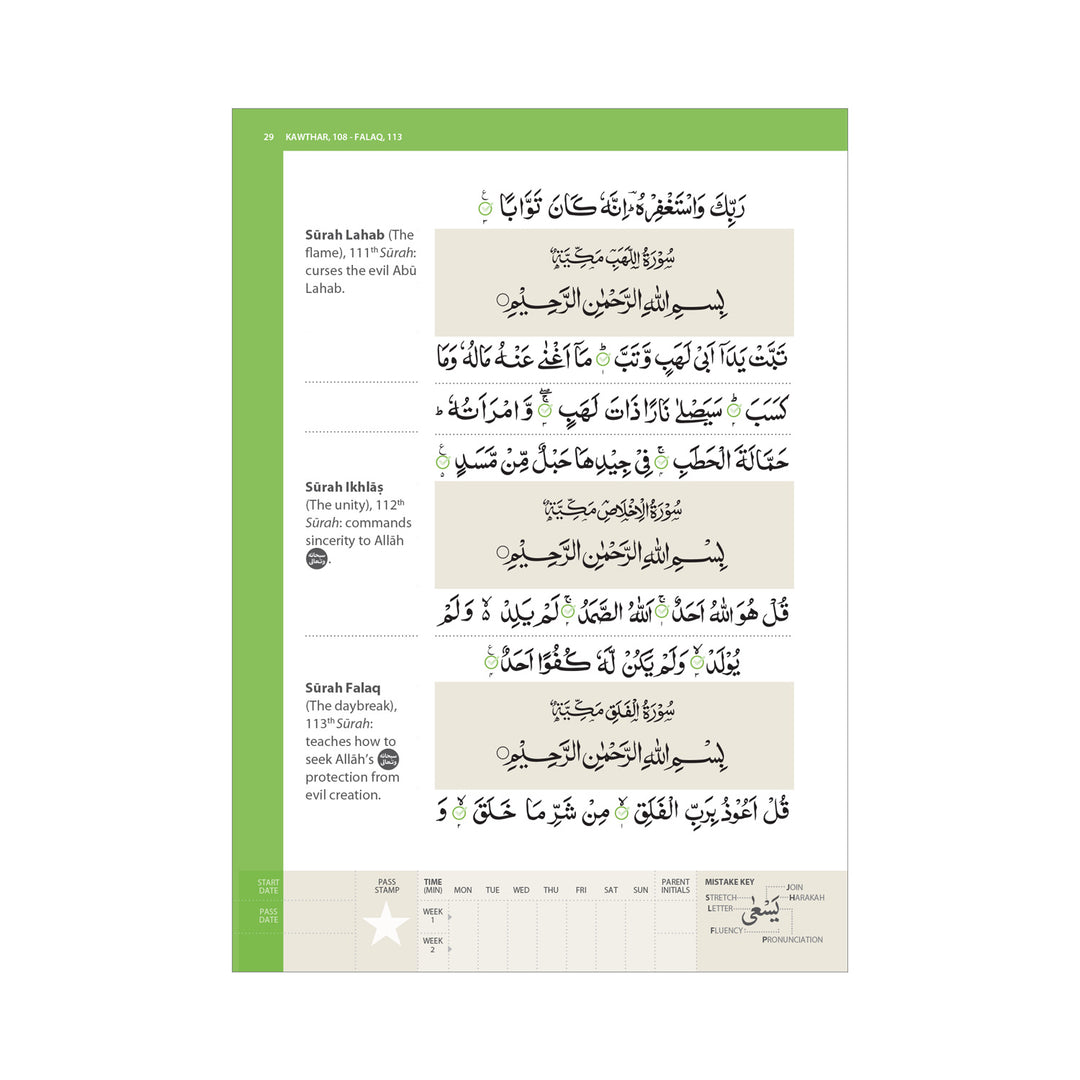 29 KAWTHAR, 108 - FALAQ, 113
رَبِّكَ وَاسْتَغْفِرْهُ ؕ اِنَّهٗ كَانَ تَوَّابًا
Sūrah Lahab (The
flame), 111th Sūrah:
curses the evil Abū
Lahab.
سُوْرَةُ اللَّهَبِ مَكِّيَّةٌ
بِسْمِ اللّٰهِ الرَّحْمٰنِ الرَّحِيْمِ
تَبَّتْ يَدَاۤ اَبِيْ لَهَبٍ وَّتَبَّ ؕ مَاۤ اَغْنٰى عَنْهُ مَالُهٗ وَمَا
كَسَبَ ؕ سَيَصْلٰى نَارًا ذَاتَ لَهَبٍ ۚ وَّامْرَاَتُهٗ ؕ
حَمَّالَةَ الْحَطَبِ ۚ فِيْ جِيْدِهَا حَبْلٌ مِّنْ مَّسَدٍ
Sūrah Ikhlāṣ
(The unity), 112th
Sūrah: commands
sincerity to Allāh
سبحانه وتعالى.
سُوْرَةُ الْاِخْلَاصِ مَكِّيَّةٌ
بِسْمِ اللّٰهِ الرَّحْمٰنِ الرَّحِيْمِ
قُلْ هُوَ اللّٰهُ اَحَدٌ ۚ اَللّٰهُ الصَّمَدُ ۚ لَمْ يَلِدْ ۙ وَلَمْ
يُوْلَدْ ۙ وَلَمْ يَكُنْ لَّهٗ كُفُوًا اَحَدٌ
Sūrah Falaq
(The daybreak),
113th Sūrah:
teaches how to
seek Allāh’s سبحانه وتعالى
protection from
evil creation.
سُوْرَةُ الْفَلَقِ مَكِّيَّةٌ
بِسْمِ اللّٰهِ الرَّحْمٰنِ الرَّحِيْمِ
قُلْ اَعُوْذُ بِرَبِّ الْفَلَقِ ۙ مِنْ شَرِّ مَا خَلَقَ ۙ وَ
START
DATE
PASS
DATE
PASS
STAMP
TIME
(MIN)
MON TUE WED THU FRI SAT SUN
PARENT
INITIALS
WEEK
1
WEEK
2
MISTAKE KEY
JOIN
STRETCH
HARAKAH
LETTER
يَسْعٰى
FLUENCY
PRONUNCIATION